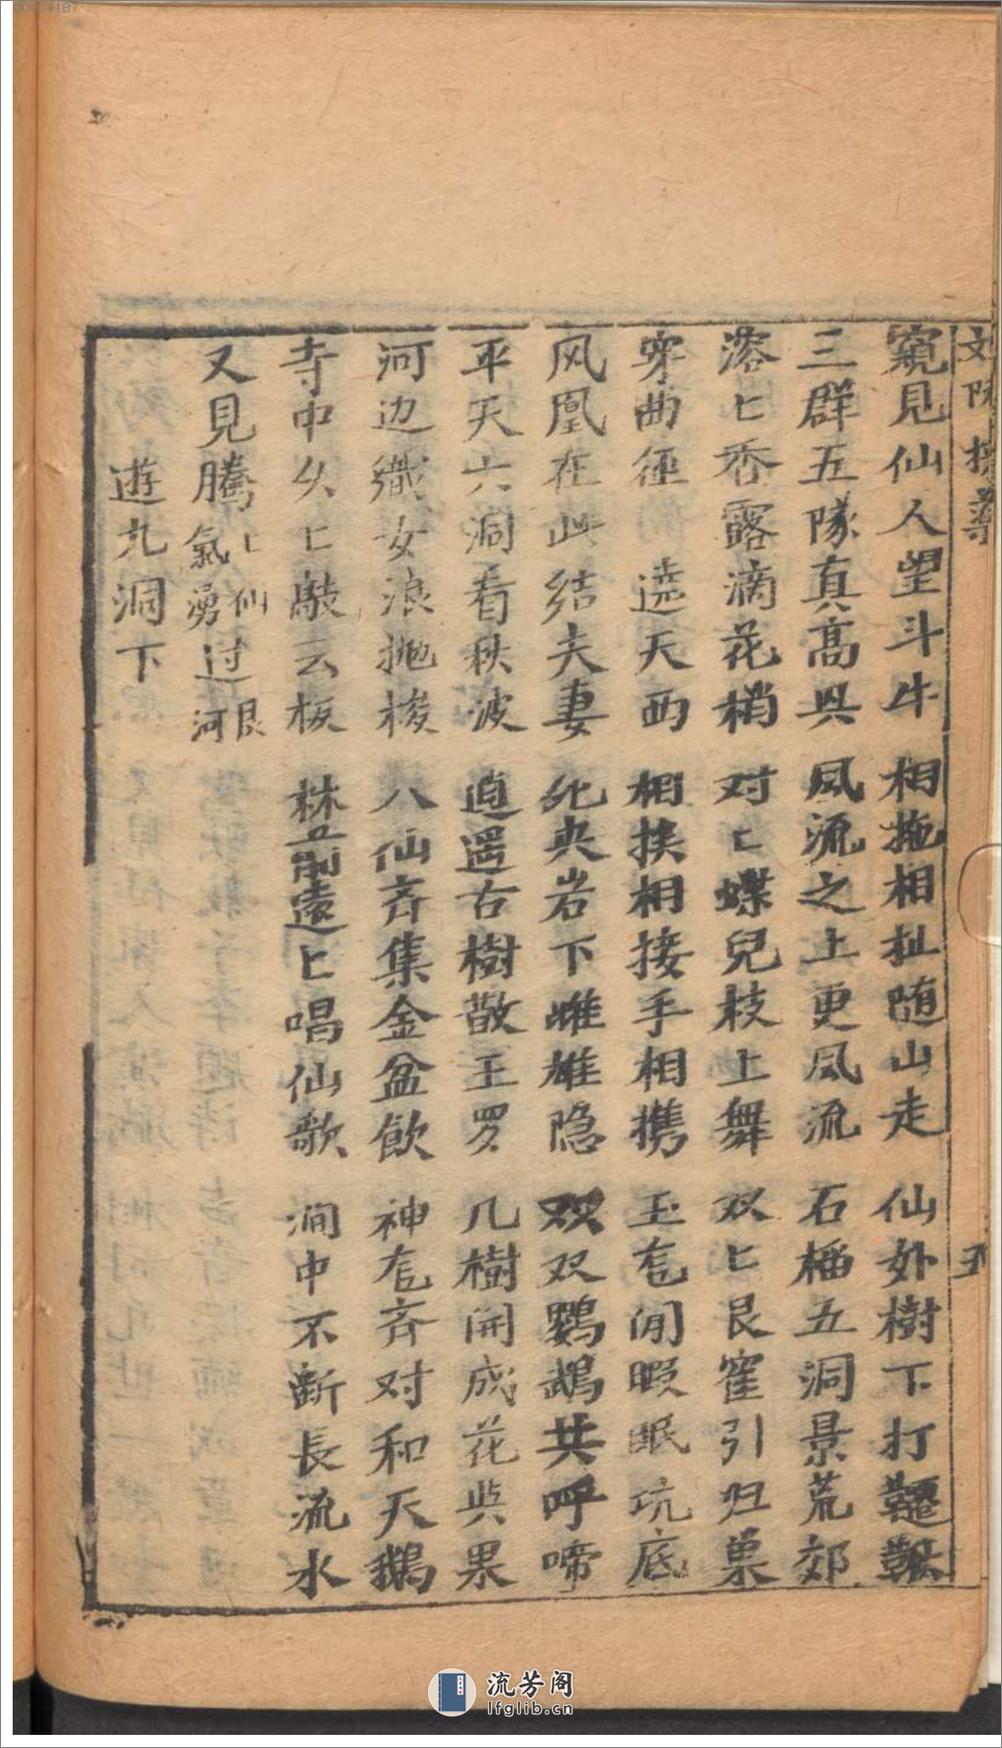 五
窺見仙人望斗牛 相拖相扯随山走 仙外樹下打鞦韆
三群五隊真高興 风流之上更风流 石榴五洞景荒郊
落匕香露滴花梢 对匕蝶兒枝上舞 双匕艮窖引归巢
穿曲徑 遶天西 相挨相接手相携 玉 閒暇眠坑底
风凰在此结夫妻 化央岩下雌雄隐 双双鸚鵡共呼啼
平天六洞看秋波 逍遥古樹散王罗 几樹開成花與果
河边織女浪抛梭 八仙斉集金盆飲 神 斉对和天鵝
寺中久匕敲云板 林前遠匕唱仙歌 澗中不斷長流水
又見騰匕仙氣勇过艮河
遊九洞下
流芳阁
lfglib.cn